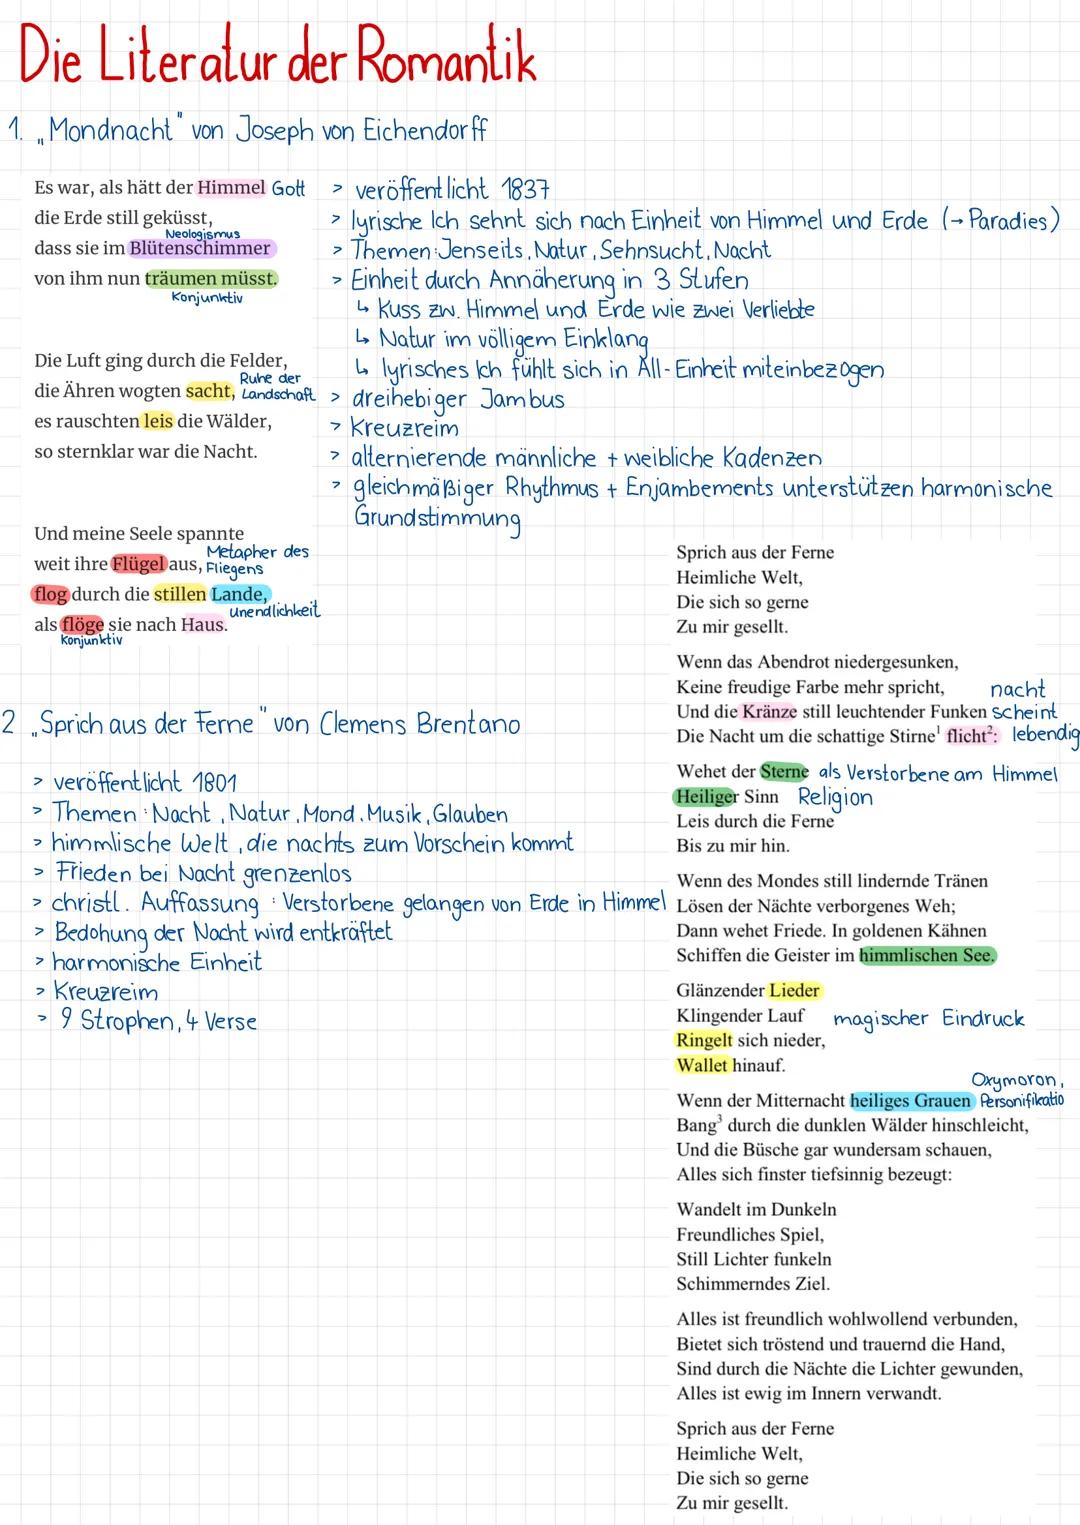 Die Literatur der Romantik
1. „Mondnacht" von Joseph von Eichendorff
Es war, als hätt der Himmel Gott
die Erde still geküsst,
Neologismus
dass sie im Blütenschimmer
von ihm nun träumen müsst.
Konjunktiv
Die Luft ging durch die Felder,
die Ähren wogten sacht, Ruhe der Landschaft
es rauschten leis die Wälder,
so sternklar war die Nacht.
Und meine Seele spannte
weit ihre Flügel aus, Metapher des Fliegens
flog durch die stillen Lande,
unendlichkeit
als flöge sie nach Haus.
Konjunktiv
> veröffentlicht 1837
> lyrische Ich sehnt sich nach Einheit von Himmel und Erde (→ Paradies)
> Themen: Jenseits, Natur, Sehnsucht, Nacht
> Einheit durch Annäherung in 3 Stufen
↳ Kuss zw. Himmel und Erde wie zwei Verliebte
↳ Natur im völligem Einklang
↳ lyrisches Ich fühlt sich in All-Einheit miteinbezogen
> dreihebiger Jambus
> Kreuzreim
> alternierende männliche + weibliche Kadenzen
> gleichmäßiger Rhythmus + Enjambements unterstützen harmonische
Grundstimmung
2 „Sprich aus der Ferne" von Clemens Brentano
> veröffentlicht 1801
> Themen: Nacht, Natur, Mond, Musik, Glauben
> himmlische Welt, die nachts zum Vorschein kommt
> Frieden bei Nacht grenzenlos
> christl. Auffassung: Verstorbene gelangen von Erde in Himmel
> Bedohung der Nacht wird entkräftet
> harmonische Einheit
> Kreuzreim
> 9 Strophen, 4 Verse
Sprich aus der Ferne
Heimliche Welt,
Die sich so gerne
Zu mir gesellt.
Wenn das Abendrot niedergesunken,
Keine freudige Farbe mehr spricht, nacht
Und die Kränze still leuchtender Funken scheint
Die Nacht um die schattige Stirne¹ flicht²: lebendig
Wehet der Sterne als Verstorbene am Himmel
Heiliger Sinn Religion
Leis durch die Ferne
Bis zu mir hin.
Wenn des Mondes still lindernde Tränen
Lösen der Nächte verborgenes Weh;
Dann wehet Friede. In goldenen Kähnen
Schiffen die Geister im himmlischen See.
Glänzender Lieder
Klingender Lauf magischer Eindruck
Ringelt sich nieder,
Wallet hinauf.
Oxymoron,
Wenn der Mitternacht heiliges Grauen Personifikatio
Bang³ durch die dunklen Wälder hinschleicht,
Und die Büsche gar wundersam schauen,
Alles sich finster tiefsinnig bezeugt:
Wandelt im Dunkeln
Freundliches Spiel,
Still Lichter funkeln
Schimmerndes Ziel.
Alles ist freundlich wohlwollend verbunden,
Bietet sich tröstend und trauernd die Hand,
Sind durch die Nächte die Lichter gewunden,
Alles ist ewig im Innern verwandt.
Sprich aus der Ferne
Heimliche Welt,
Die sich so gerne
Zu mir gesellt.